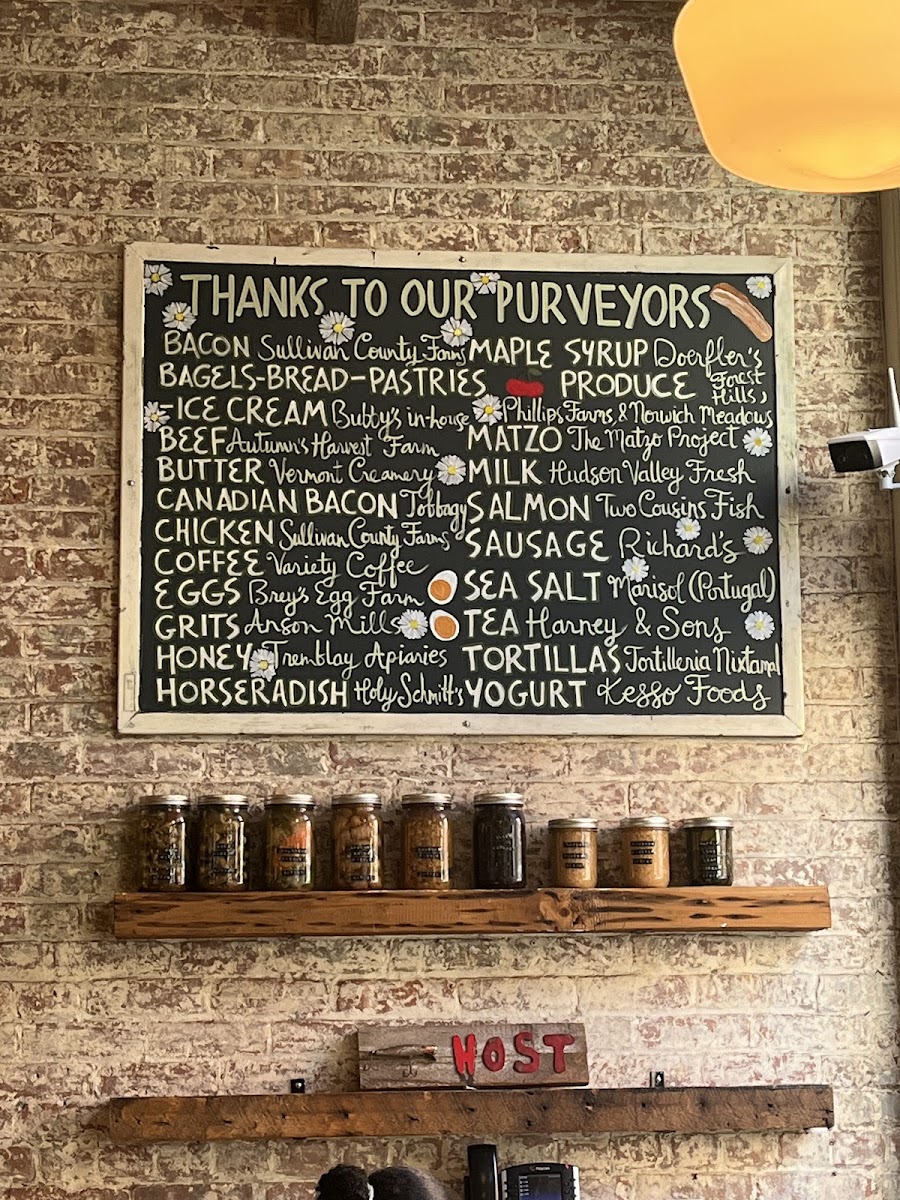 THANKS TO OUR PURVEYORS
BACON Sullivan County Farms
BAGELS-BREAD-PASTRIES
-ICE CREAM Bubby's in-house
BEEF Autumn's Harvest Farm
BUTTER Vermont Creamery
CANADIAN BACON Tobbagy
CHICKEN Sullivan County Farms
COFFEE Variety Coffee
EGGS Brey's Egg Farm
GRITS Anson Mills
HONEY Tremblay Apiaries
HORSERADISH Holy Schmitt's
MAPLE SYRUP Doerfler's
PRODUCE Forest
Hills,
Phillips Farms, & Norwich Meadows
MATZO The Matzo Project
MILK Hudson Valley Fresh
SALMON Two Cousins Fish
SAUSAGE Richard's
SEA SALT Marisol (Portugal)
TEA Harney & Sons
TORTILLAS Tortilleria Nixtamal
YOGURT Kesso Foods
HOST